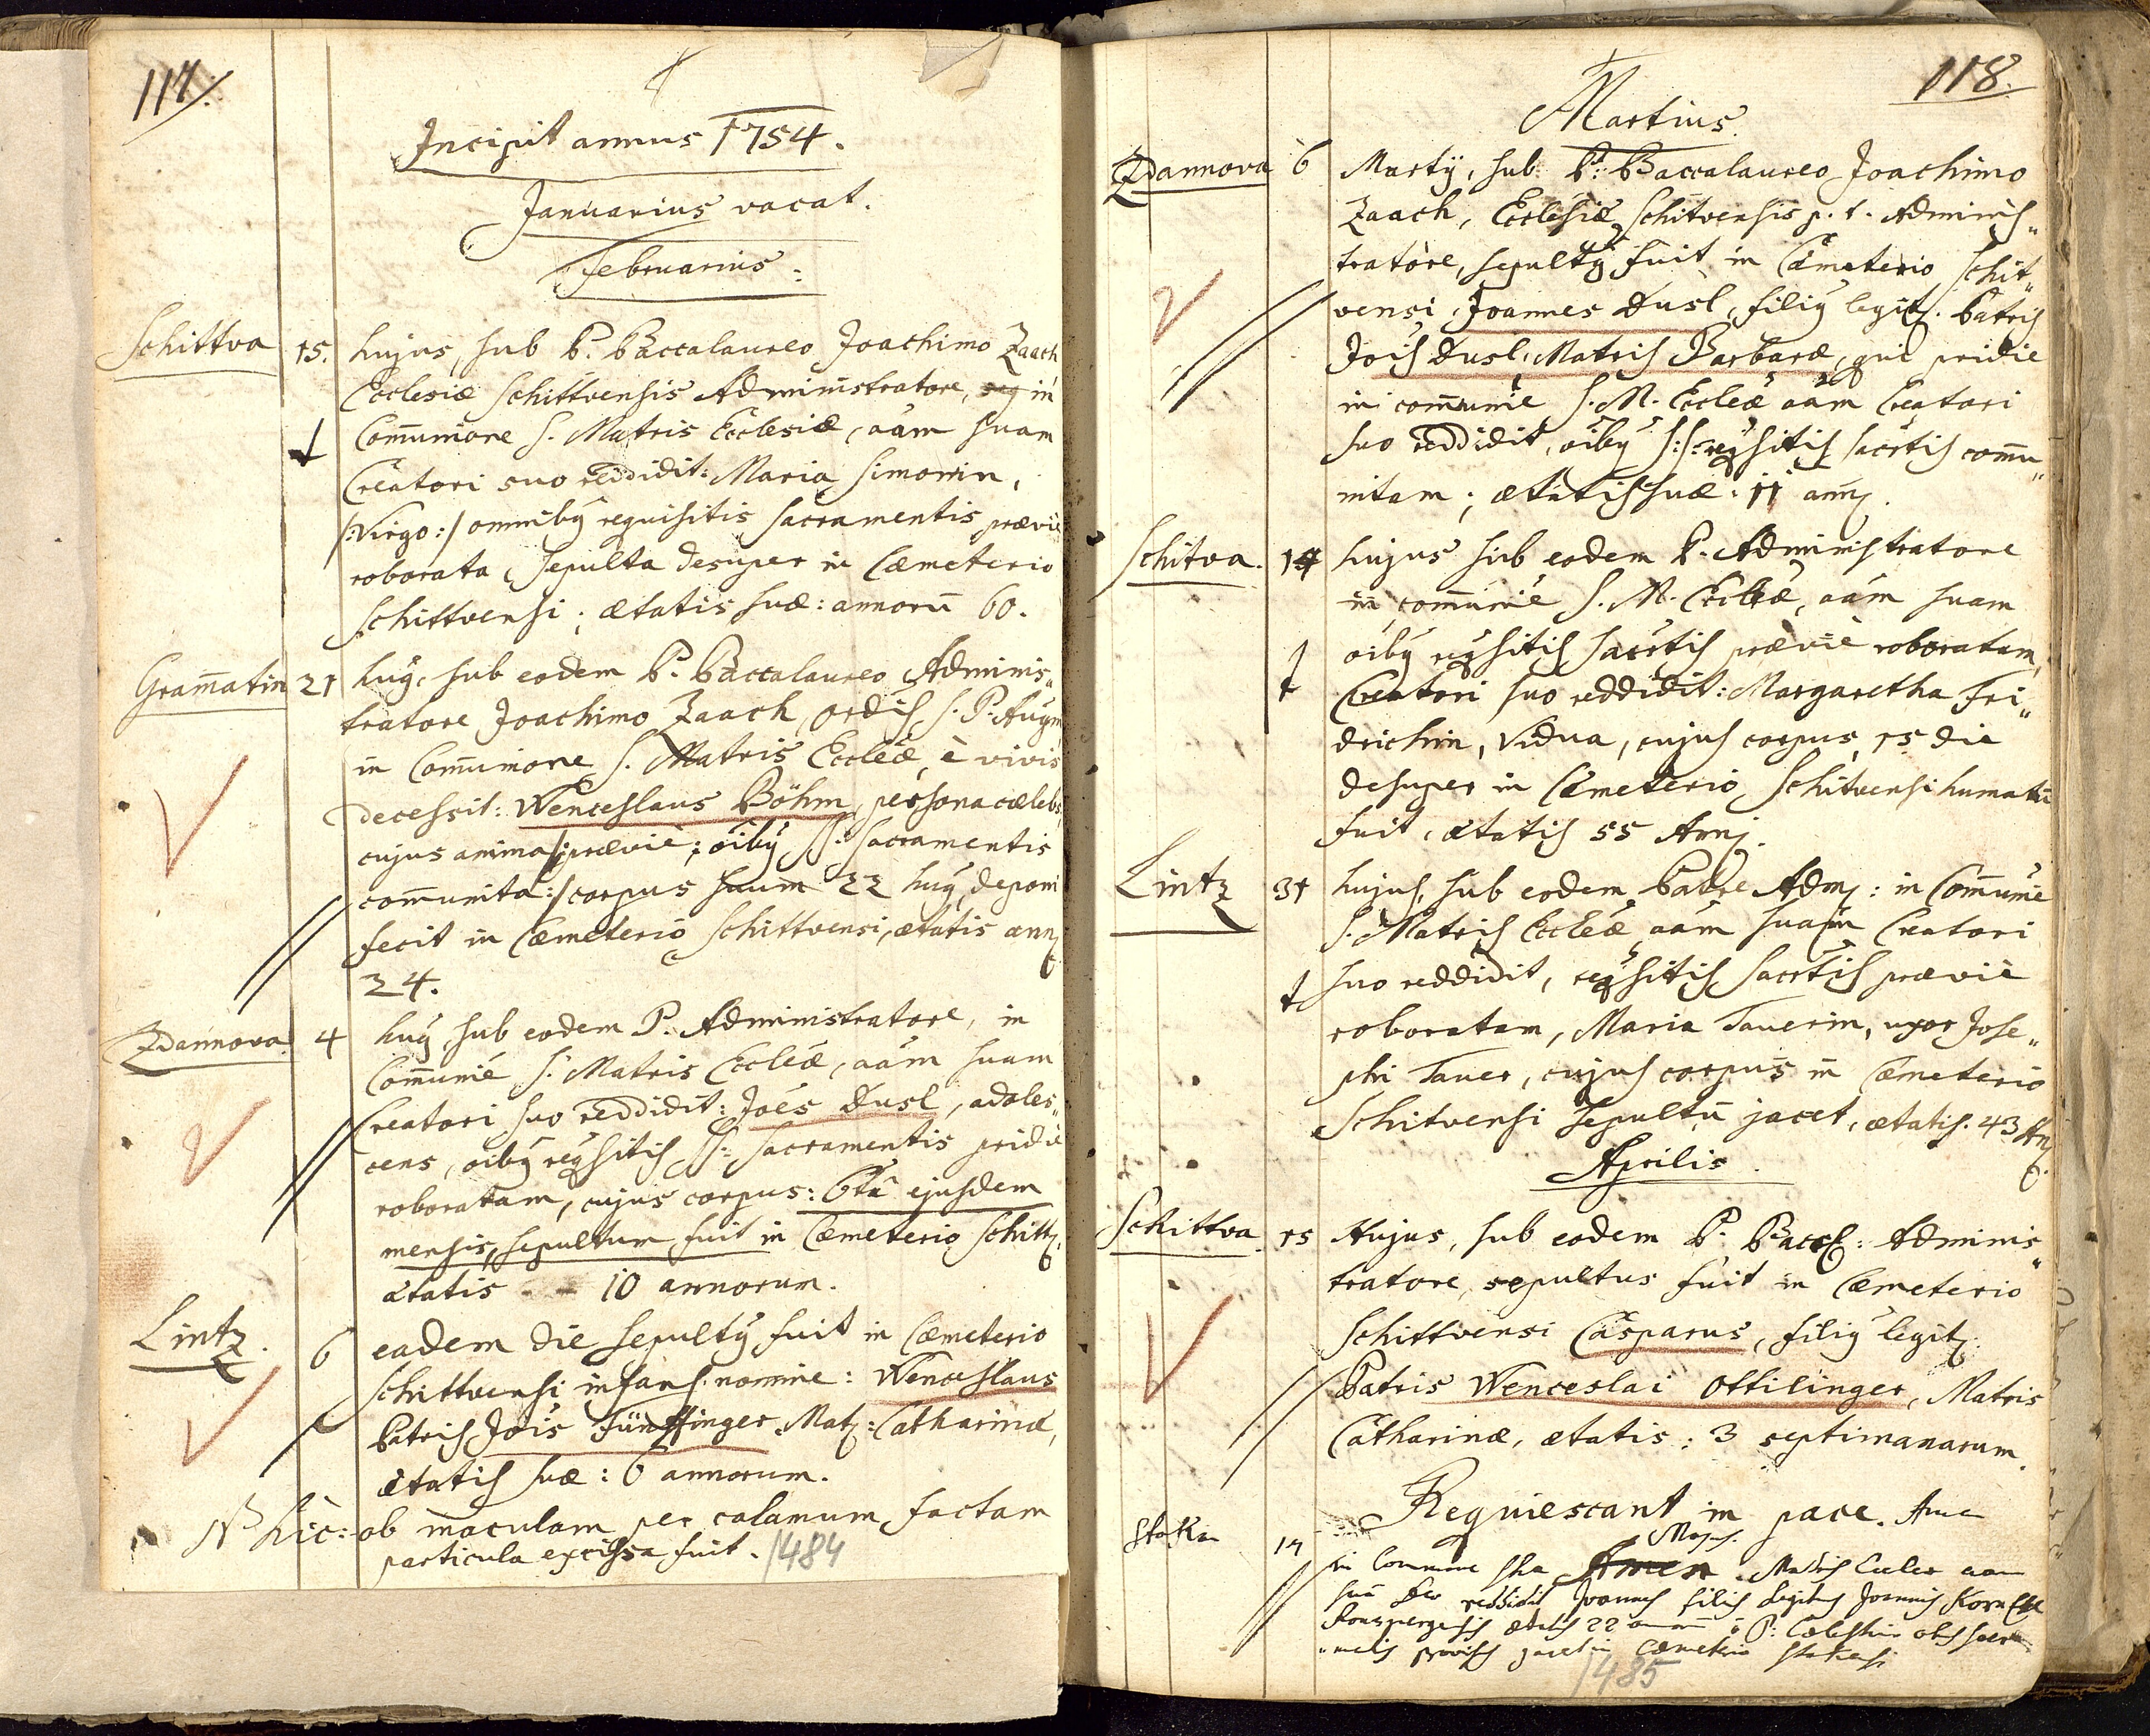 117.
Incipit annus 1754.
Januarius vacat.
Februarius.
Schittva 15. hujus, sub P. Baccalaureo Joachimo Zaach
Ecclesiæ Schittvensis Administratore, in
Com̅unione S. Matris Ecclesiæ, aãm suam
Creatori suo reddidit: Maria Simonin,
/:Virgo:/ omnibȳ requisitis sacramentis prævie
roborata, sepulta desuper in Cæmeterio
Schittvensi; ætatis suæ: annorū 60.
Gram̅atin 21 hujȳ, sub eodem P. Baccalaureo Adminis„
tratore Joachimo Zaach, ordis S. P. Augni
in Com̅unione S. Matris Eccleæ, è vivis
decessit: Wenceslaus Böhm, persona cælebs,
cujus anima /:prævie; oibȳ SS: Sacramentis
com̅unita:/ corpus suum 22 hujȳ deponi
fecit in Cæmeterio Schittvensi, ætatis ann
24.
Zdannova 4 hujȳ, sub eodem P. Administratore, in
Com̅unie S. Matris Eccleæ, aãm suam
Creatori suo reddidit: Joës Dusl, adoles„
cens, oibȳ reqsitis SS: Sacramentis pridie
roboratam, cujus corpus: 6ta ejusdem
mensis, sepultum fuit in Cæmeterio Schitt.
ætatis 10 annorum.
Lintz. 6 eadem die sepultȳ fuit in Cæmeterio
Schittvensi infans nomine: Wenceslaus
Patris Jois Fünffinger, Mat: Catharinæ,
ætatis suæ: 6 annorum.
NB hic: ob maculam per calamum factam
particula excissa fuit. 1484
118.
Martius.
Zdannova 6 Martÿ, sub P. Baccalaureo Joachimo
Zaach, Ecclesiæ Schitvensis p. t. Adminis„
tratore, sepultȳ fuit in Cæmeterio Schit„
vensi, Joannes Dusl, filiȳ legit. Patris
Jois Dusl, Matris Barbaræ, qui pridie
in com̅unie S. M. Eccleæ aãm Creatori
suo reddidit, oibȳ S:S: reqsitis sacrtis com̅u„
nitam; ætatis suæ: 11 ann.
Schitva. 14 hujus sub eodem P. Administratore
in com̅unie S. M. Eccleæ, aãm suam
oibȳ reqsitis sacrtis prævie roboratam,
Creatori suo reddidit: Margaretha Fri„
drichin, Vidua, cujus corpus 15 die
desuper in Cæmeterio Schitvensi humatū
fuit, ætatis 55 Ann.
Lintz 31 hujus, sub eodem Patre Adm: in Com̅unie
S. Matris Eccleæ aãm suam Creatori
suo reddidit, reqsitis sacrtis prævie
roboratam, Maria Tauerin, uxor Jose„
phi Tauer, cujus corpus in Cæmeterio
Schitvensi sepultū jacet, ætatis. 43 An
Aprilis.
Schittva 15 Hujus, sub eodem P. Bacc: Adminis„
tratore, sepultus fuit in Cæmeterio
Schittvensi Casparus, filiȳ legit.
Patris Wenceslai Ottilinger, Matris
Catharinæ, ætatis: 3 septimanarum.
Requiescant in pace. Amen
Majus.
Stokau 17 in Commune Amen. Matris
suã Deo reddidit Joannes filius legitus Joannis
ætatis 22 P: Cælestino
jacet in Cæmeterio
1485